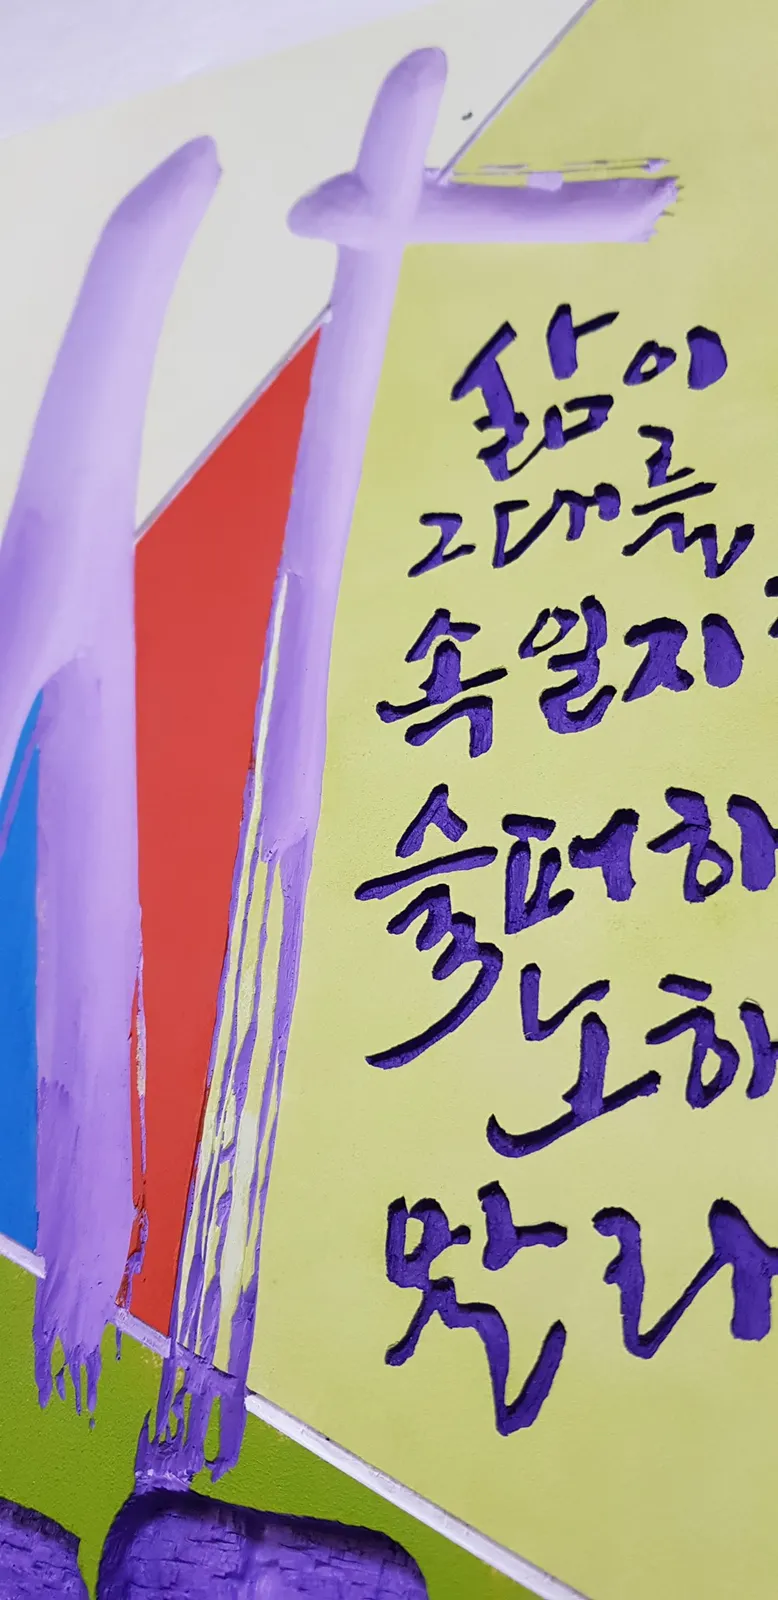 삶이
그대를
속일지
슬퍼하
노하
말라